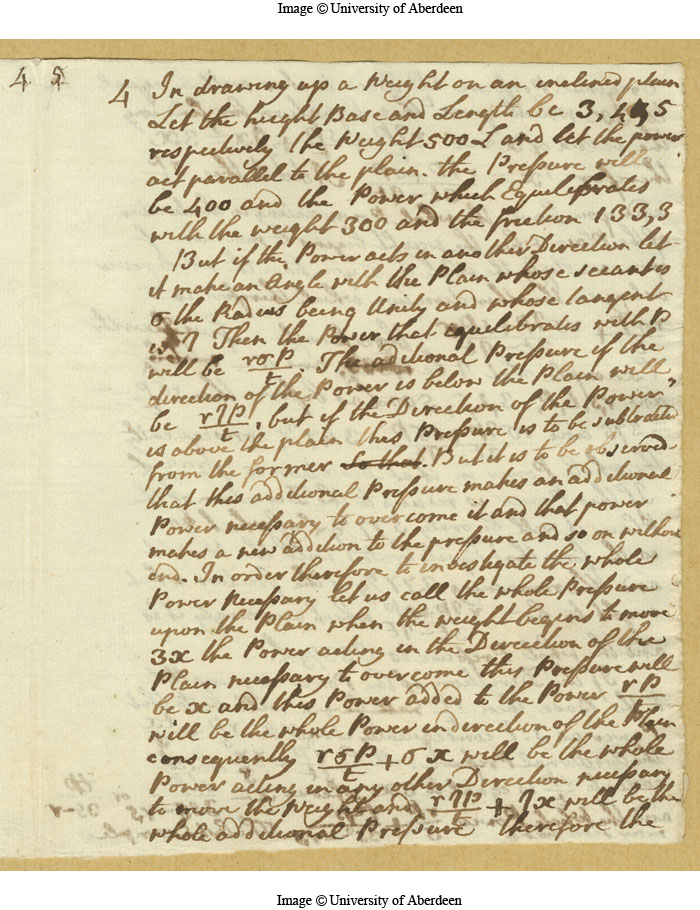 Image © University of Aberdeen
4 5
4 In drawing up a Weight on an inclined plain
Let the height Base and Length be 3, 4, 5
respectively the Weight 500 L and let the power
act parallel to the plain. the Pressure will
be 400 and the Power which Equilibrates
with the weight 300 and the friction 133,3
But if the Power acts in another Direction let
it make an Angle with the Plain whose secant is
σ the Radius being Unity and whose tangent
is 7 Then the Power that equilibrates with P
will be rσP/t. The aditional Pressure if the
direction of the Power is below the Plain will
be r7P/t, but if the Direction of the Power
is above the plain this Pressure is to be subtracted
from the former So that. But it is to be observed
that this additional Pressure makes an additional
Power necessary to overcome it and that power
makes a new addition to the pressure and so on without
end. In order therefore to investigate the whole
Power necessary let us call the whole Pressure
upon the Plain when the weight begins to move
3x the Power acting in the Direction of the
Plain necessary to overcome this Pressure will
be x and this Power added to the Power rP/t
will be the whole Power in direction of the Plain
consequently rσP/t + σx will be the whole
Power acting in any other Direction necessary
to move the Weight and r7P/t + 7x will be the
whole additional Pressure therefore the
Image © University of Aberdeen